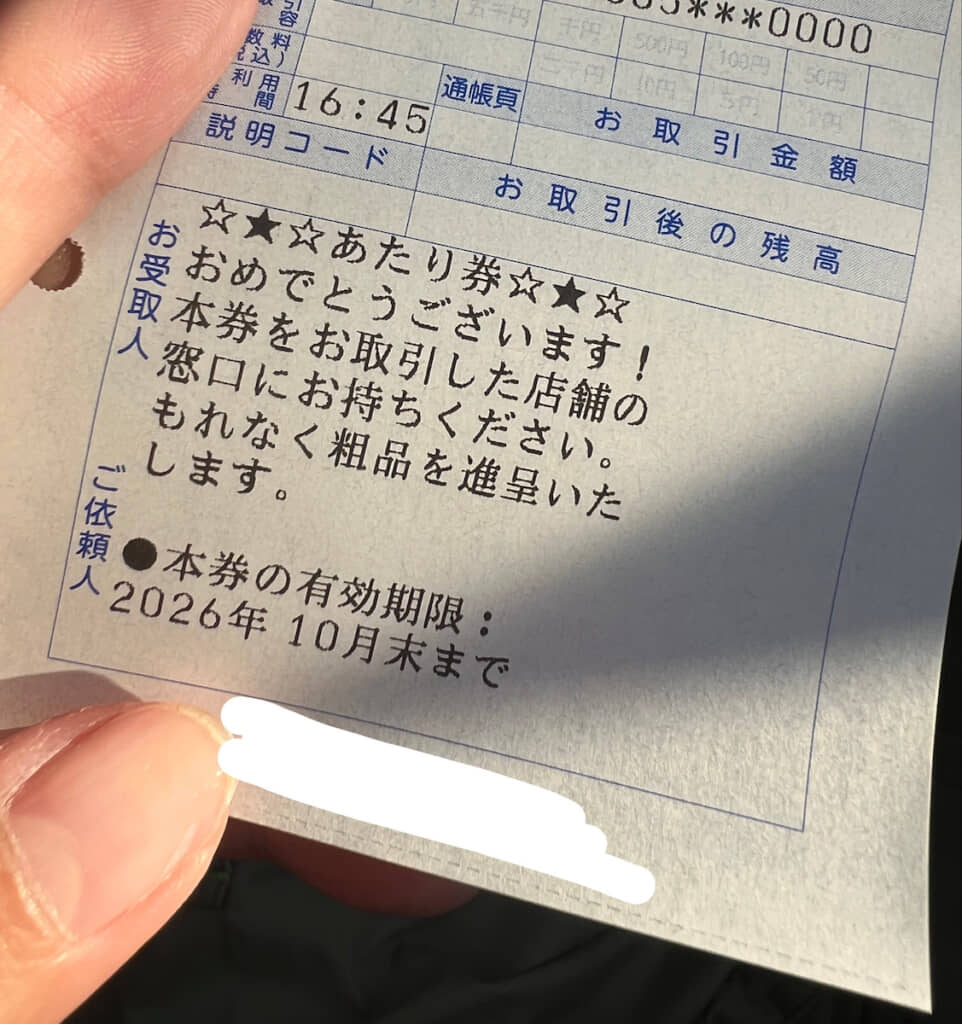 ***0000
千円 500円 100円 50円
二千円 10円 5円
利用
16:45
通帳頁
お取引金額
説明コード
お取引後の残高
お受取人
☆★☆あたり券☆★☆
おめでとうございます!
本券をお取引した店舗の
窓口にお持ちください。
もれなく粗品を進呈いた
します。
ご依頼人
●本券の有効期限:
2026年 10月末まで